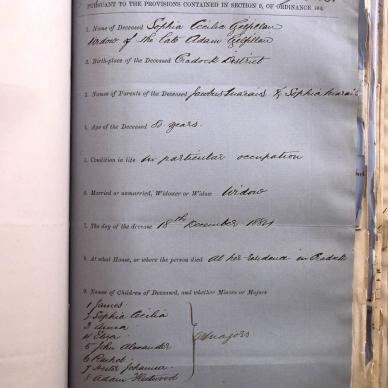 PURSUANT TO THE PROVISIONS CONTAINED IN SECTION 9, OF ORDINANCE 104,
1. Name of Deceased Sophia Cecilia Gilfillan
Widow of the late Adam Gilfillan
2. Birth-place of the Deceased Cradock District
3. Names of Parents of the Deceased Jacobus Marais & Sophia Marais
4. Age of the Deceased 80 years
5. Condition in life no particular occupation
6. Married or unmarried, Widower or Widow Widow
7. The day of the decease 18th December
8. At what House, or where the person died At her residence in Cradock
9. Names of Children of Deceased, and whether Minors or Majors
1 James
2 Sophia Cecilia
3 Anna
4 Eliza
5 John Alexander
6 Rachel
7 Hester Johanna
8 Adam Fleetwood
Majors